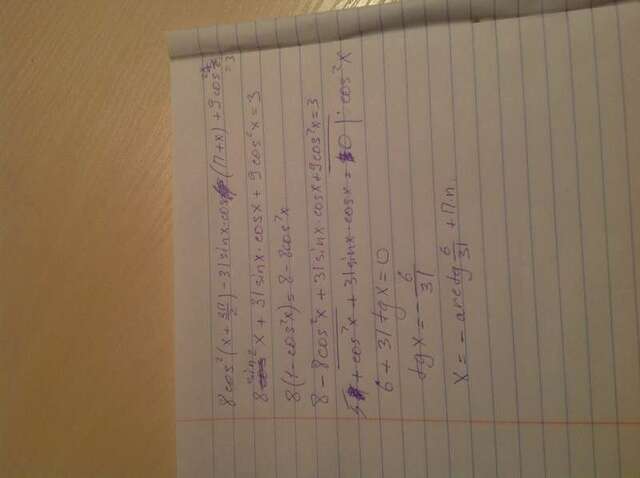 8cos²(x + 3π/2) - 31sinx·cos(π+x) + 9cos²x = 3
8sin²x + 31sinx·cosx + 9cos²x = 3
8(1-cos²x) = 8 - 8cos²x
8 - 8cos²x + 31sinx·cosx + 9cos²x = 3
5 + cos²x + 31sinx·cosx = 0 | : cos²x
6 + 31tgx = 0
tgx = - 6/31
x = -arctg 6/31 + π.n.